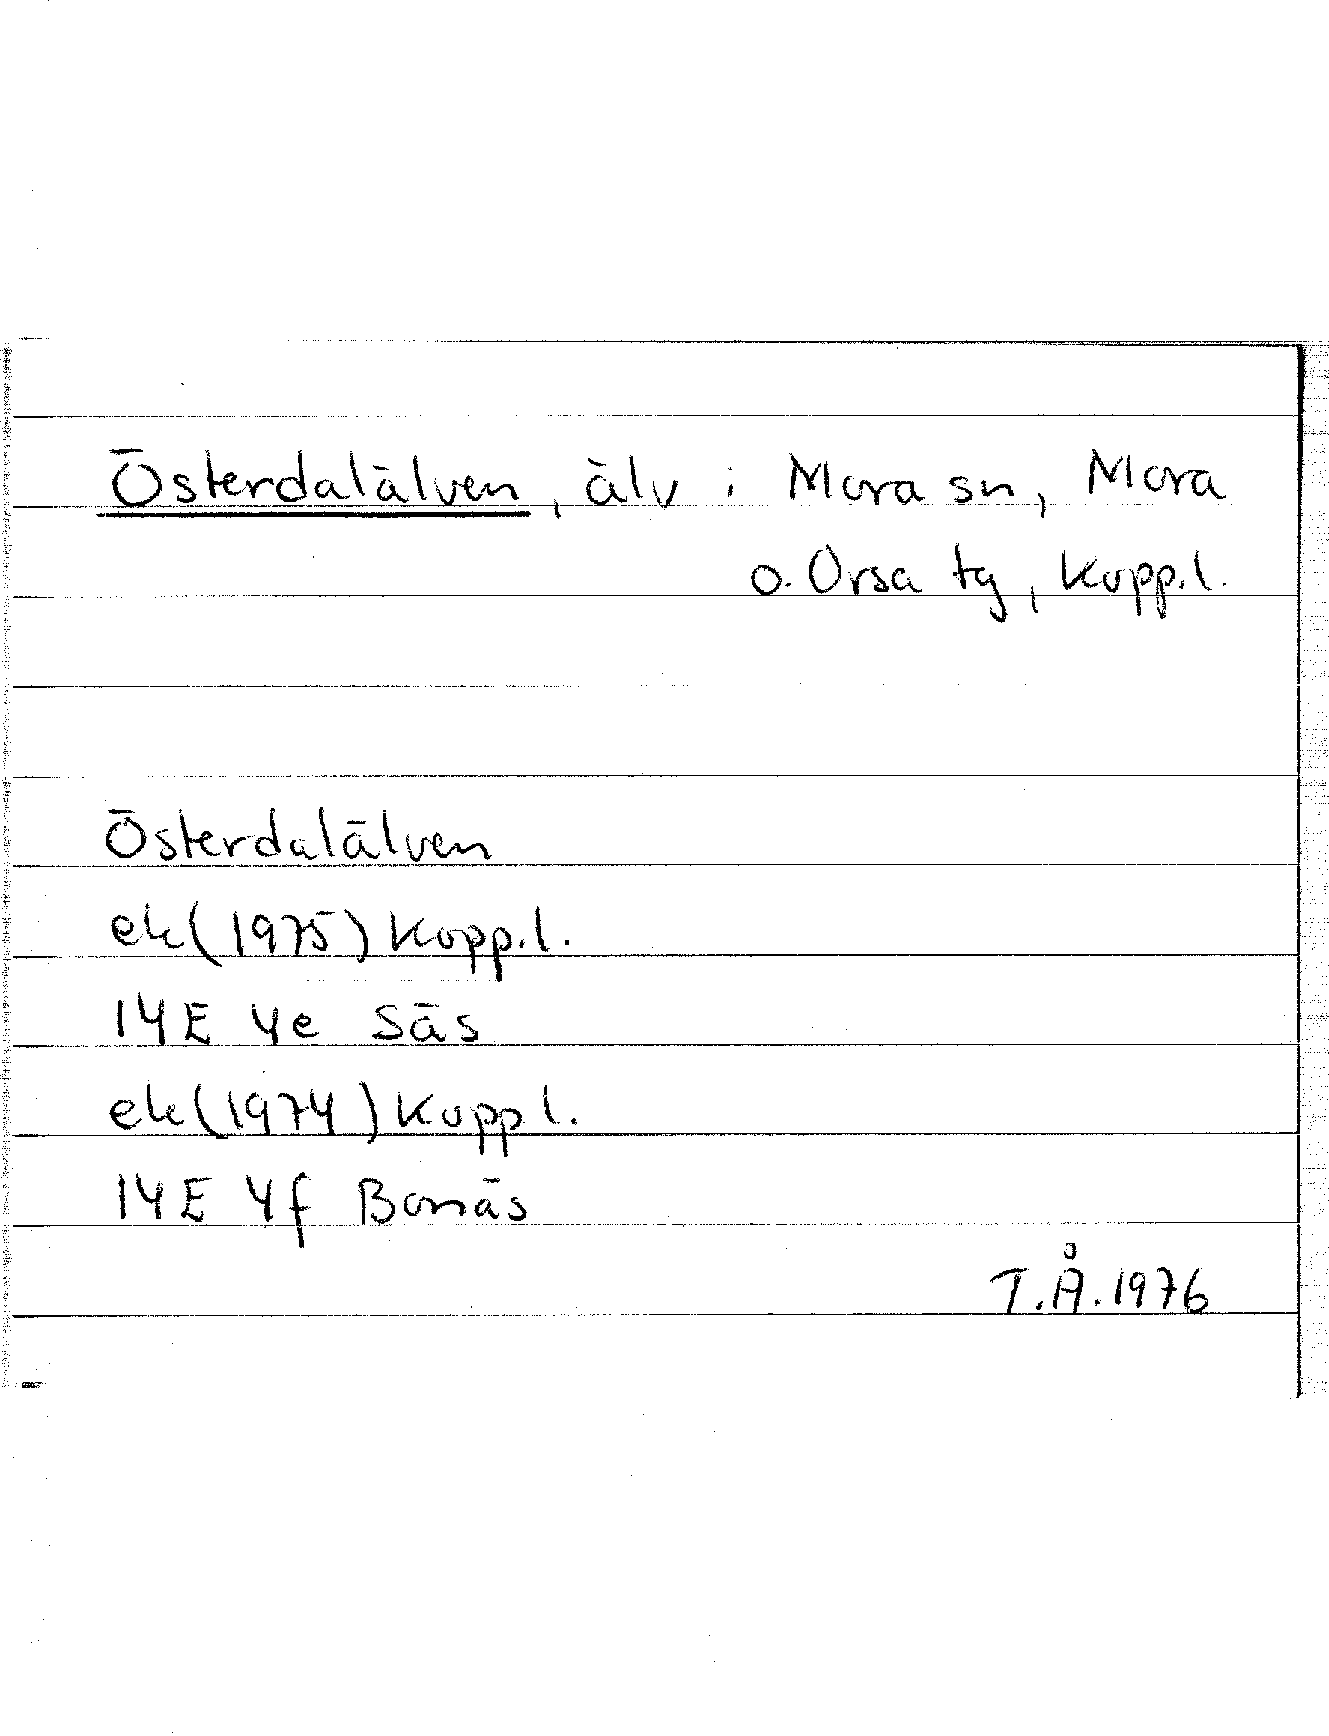 Österdalälven, älv i Mora sn, Mora
o. Orsa tg, Kopp.l.
Österdalälven
ek(1975) Kopp.l.
14E 4e Säs
ek(1974) Kopp l.
14E 4f Bonäs
T.Å. 1976